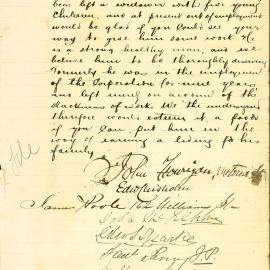 been left a widower with five young
children, and at present out of employment
would be glad if you could see your
way to give him some work. He
is a strong healthy man, and we
believe him to be thoroughly deserving
Formerly he was in the employment
of the Corporation for nine years
and left owing on account of the
slackness of work. We the undersigned
therefore would esteem it a favor
if you can put him in the
way of earning a living for his
family.
John
James Poole William St
John McElphin
J.P.